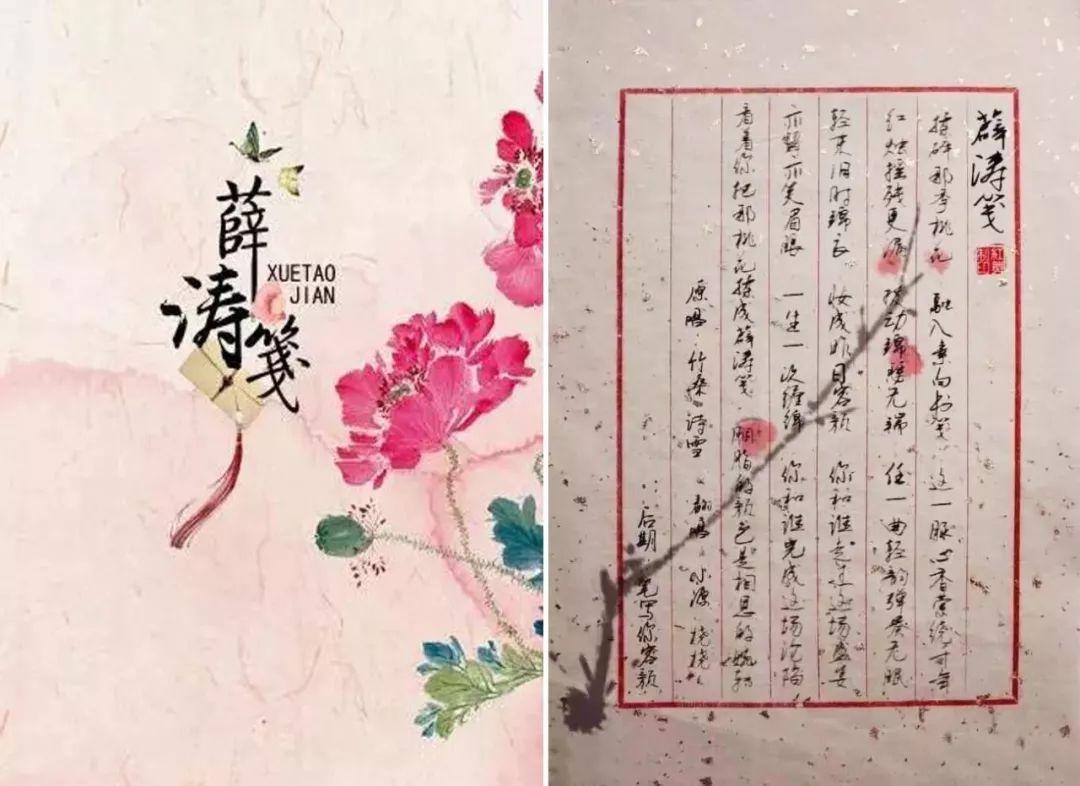 薛
涛
笺
XUETAO
JIAN
薛涛笺
揉碎那季桃花 融入素白书笺 这一脉心香萦绕
红烛摇残更漏 拨动锦瑟无端 任一曲轻韵弹奏无眠
轻束旧时锦衣 妆成昨日容颜 你和谁走过这场盛宴
亦颦亦笑眉眼 一生一次缠绵 你和谁完成这场沦陷
看着你把那桃花揉成薛涛笺 胭脂的颜色是相思的
原唱 竹桑 诗雪 翻唱 水源 桡桡
后期 笔写你容颜